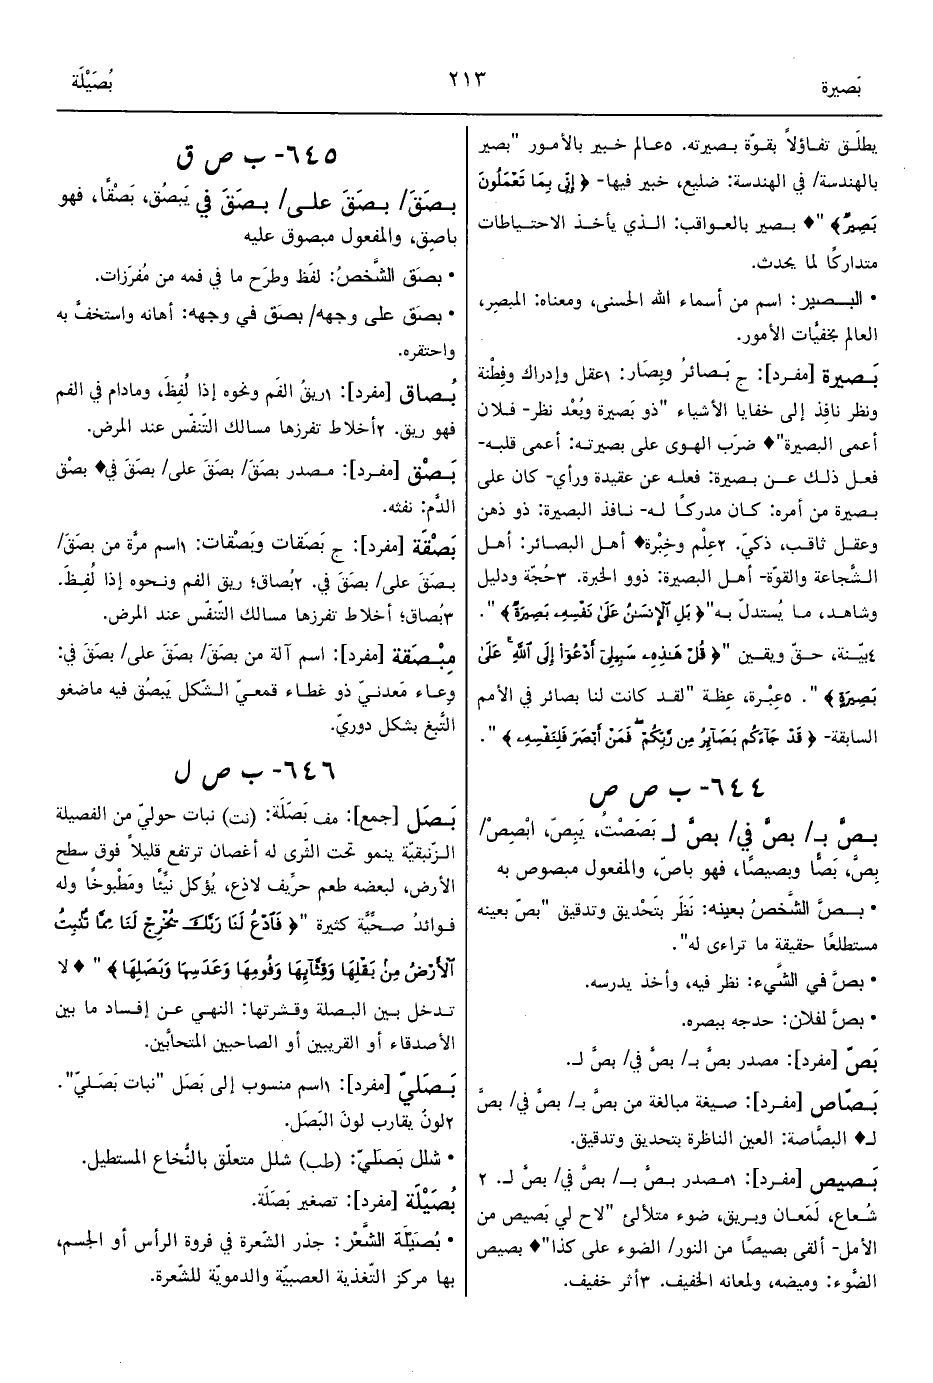 بَصيرة
٢١٣
بُصَيْلَة
يطلَق تفاؤلاً بقوّة بصيرته. ٥عالم خبير بالأمور "بصير
بالهندسة/ في الهندسة: ضليع، خبير فيها- ﴿ إِنِّي بِمَا تَعْمَلُونَ
بَصِيرٌ﴾ "♦ بصير بالعواقب: الذي يأخذ الاحتياطات
متداركًا لما يحدث.
• البصير: اسم من أسماء الله الحسنى، ومعناه: المبصِر،
العالم بخفيَّات الأمور.
بَصيرة [مفرد]: ج بَصائرُ وبِصَار: ١عقل وإدراك وفِطْنة
ونظر نافِذ إلى خفايا الأشياء "ذو بَصيرة وبُعْد نظر- فلان
أعمى البصيرة"♦ ضرَب الهوى على بصيرته: أعمى قلبه-
فعل ذلك عن بصيرة: فعله عن عقيدة ورأي- كان على
بصيرة من أمره: كان مدركًا له- نافذ البصيرة: ذو ذهن
وعقل ثاقب، ذكيّ. ٢عِلْم وخِبْرة♦ أهل البصائر: أهل
الشَّجاعة والقوّة- أهل البصيرة: ذوو الخبرة. ٣حُجّة ودليل
وشاهد، ما يُستدلّ به"﴿ بَلِ الإِنسَنُ عَلَى نَفْسِهِ بَصِيرَةٌ﴾ ".
٤بيّنة، حقّ ويقين "﴿ قُلْ هَذِهِ سَبِيلِي أَدْعُوا إِلَى اللَّهِ عَلَى
بَصِيرَةٍ﴾ ". ٥عِبْرة، عِظة "لقد كانت لنا بصائر في الأمم
السابقة- ﴿ قَدْ جَاءَكُم بَصَائِرُ مِن رَّبِّكُمْ فَمَنْ أَبْصَرَ فَلِنَفْسِهِ﴾ ".
٦٤٤- ب ص ص
بصَّ بـ/ بصَّ في/ بصَّ لـ بَصَصْتُ، يَبِصّ، ابْصِصْ/
بِصَّ، بَصًّا وبصيصًا، فهو باصّ، والمفعول مبصوص به
• بصَّ الشَّخصُ بعينه: نَظَر بتَحْديق وتدقيق "بصّ بعينه
مستطلعًا حقيقة ما تراءى له".
• بصَّ في الشَّيء: نظر فيه، وأخذ يدرسه.
• بصَّ لفلان: حدجه ببصره.
بَصّ [مفرد]: مصدر بصَّ بـ/ بصَّ في/ بصَّ لـ.
بَصّاص [مفرد]: صيغة مبالغة من بصَّ بـ/ بصَّ في/ بصَّ
لـ♦ البصَّاصة: العين الناظرة بتحديق وتدقيق.
بَصيص [مفرد]: ١مصدر بصَّ بـ/ بصَّ في/ بصَّ لـ. ٢
شُعاع، لَمَعان وبريق، ضوء متلألئ "لاح لي بَصيص من
الأمل- ألقى بصيصًا من النور/ الضوء على كذا"♦ بصيص
الضَّوء: وميضه، ولمعانه الخفيف. ٣أثر خفيف.
٦٤٥- ب ص ق
بصَقَ/ بصَقَ على/ بصَقَ في يَبصُق، بَصْقًا، فهو
باصِق، والمفعول مبصوق عليه
• بصَق الشَّخصُ: لفَظ وطرَح ما في فمه من مُفرَزات.
• بصَق على وجهه/ بصَق في وجهه: أهانه واستخفَّ به
واحتقره.
بُصاق [مفرد]: ١ريقُ الفَم ونحوه إذا لُفِظَ، ومادام في الفم
فهو ريق. ٢أخلاط تفرزها مسالك التّنفّس عند المرض.
بَصْق [مفرد]: مصدر بصَقَ/ بصَقَ على/ بصَقَ في♦ بصْق
الدَّم: نفثه.
بَصْقَة [مفرد]: ج بَصَقات وبَصْقات: ١اسم مرَّة من بصَقَ/
بصَقَ على/ بصَقَ في. ٢بُصاق؛ ريق الفم ونحوه إذا لُفِظَ.
٣بُصاق؛ أخلاط تفرزها مسالك التّنفّس عند المرض.
مِبْصَقة [مفرد]: اسم آلة من بصَقَ/ بصَقَ على/ بصَقَ في:
وعاء مَعدنيّ ذو غطاء قمعيّ الشّكل يَبصُق فيه ماضغو
التَّبغ بشكل دوريّ.
٦٤٦- ب ص ل
بَصَل [جمع]: مف بَصَلَة: (نت) نبات حوليّ من الفصيلة
الزّنبقيّة ينمو تحت الثرى له أغصان ترتفع قليلاً فوق سطح
الأرض، لبعضه طعم حرِّيف لاذع، يُؤكل نيًّئًا ومَطْبوخًا وله
فوائدُ صحّيَّة كثيرة "﴿ فَادْعُ لَنَا رَبَّكَ يُخْرِجْ لَنَا مِمَّا تُنْبِتُ
الأَرْضُ مِنْ بَقْلِهَا وَقِثَّائِهَا وَفُومِهَا وَعَدَسِهَا وَبَصَلِهَا﴾ "♦ لا
تدخل بين البصلة وقشرتها: النهي عن إفساد ما بين
الأصدقاء أو القريبين أو الصاحبين المتحابَّين.
بَصَليّ [مفرد]: ١اسم منسوب إلى بَصَل "نبات بَصَليّ".
٢لونٌ يقارب لونَ البَصَل.
• شلل بَصَليّ: (طب) شلل متعلّق بالنُّخاع المستطيل.
بُصَيْلَة [مفرد]: تصغير بَصَلَة.
• بُصَيْلَة الشَّعْر: جذر الشَّعرة في فروة الرأس أو الجسم،
بها مركز التّغذية العصبيّة والدمويّة للشَّعرة.